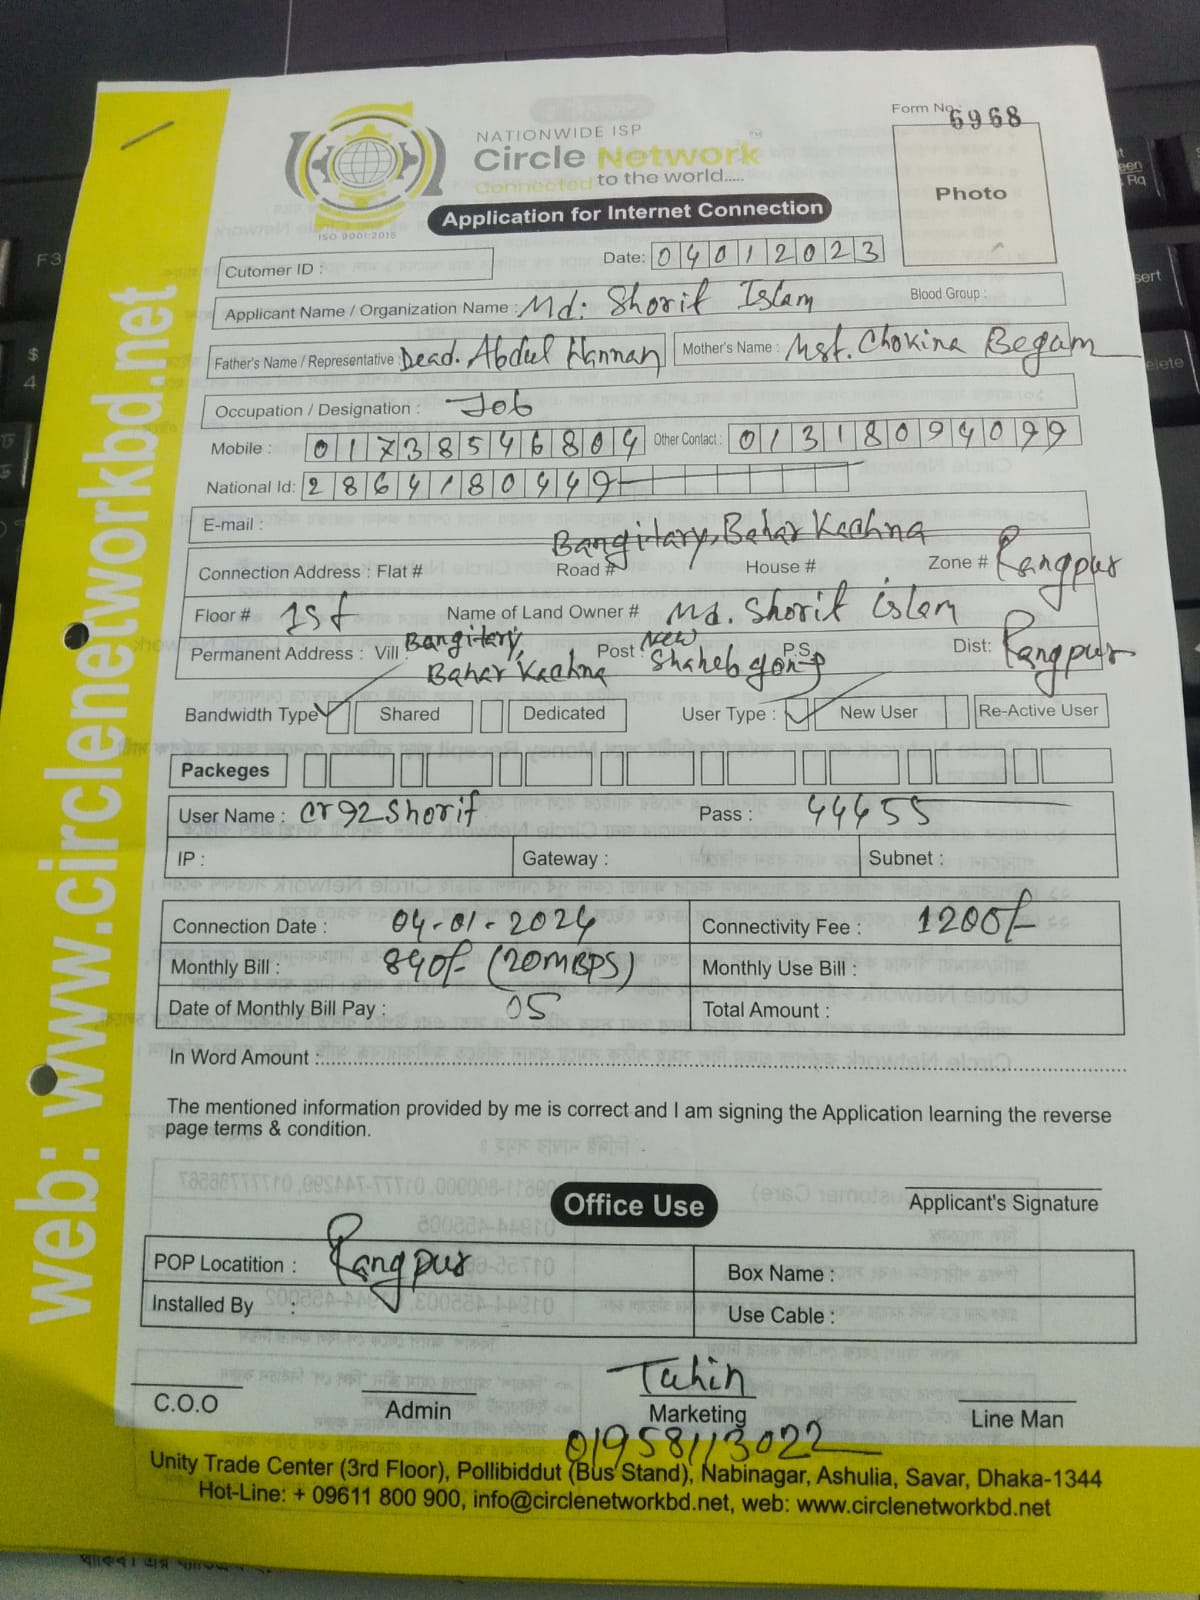 Form No.: 6968
NATIONWIDE ISP
Circle Network TM
Connected to the world.....
ISO 9001:2015
Application for Internet Connection
Photo
Cutomer ID :
Date: 04012023
Applicant Name / Organization Name : Md: Shorif Islam Blood Group :
Father's Name / Representative : Dead. Abdul Hannan Mother's Name : Mst. Chokina Begam
Occupation / Designation : Job
Mobile : 01738546804 Other Contact : 01318094099
National Id: 2864180449
E-mail :
Bangitary, Bahar Kachna
Connection Address : Flat # Road # House # Zone # Rangpur
Floor # 1st Name of Land Owner # Md. Shorif islam
Permanent Address : Vill : Bangitary, Bahar Kachna Post : New Shahebgonj P.S. Dist: Rangpur
Bandwidth Type Shared Dedicated User Type : New User Re-Active User
Packeges
User Name : cr92shorif Pass : 44455
IP : Gateway : Subnet :
Connection Date : 04-01-2024 Connectivity Fee : 1200/-
Monthly Bill : 840/- (20MBPS) Monthly Use Bill :
Date of Monthly Bill Pay : 05 Total Amount :
In Word Amount :
The mentioned information provided by me is correct and I am signing the Application learning the reverse
page terms & condition.
Applicant's Signature
Office Use
POP Locatition : Rangpur Box Name :
Installed By : Use Cable :
Tuhin
C.O.O Admin Marketing Line Man
01958113022
Unity Trade Center (3rd Floor), Pollibiddut (Bus Stand), Nabinagar, Ashulia, Savar, Dhaka-1344
Hot-Line: + 09611 800 900, info@circlenetworkbd.net, web: www.circlenetworkbd.net
web: www.circlenetworkbd.net
F3
$
4